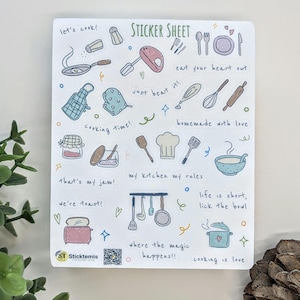 STICKER SHEET
let's cook!
eat your heart out
just beat it!
cooking time!
homemade with love
that's my jam!
my kitchen my rules
life is short,
lick the bowl
we're toast!
where the magic
happens!!
cooking is love
ST Sticktemis